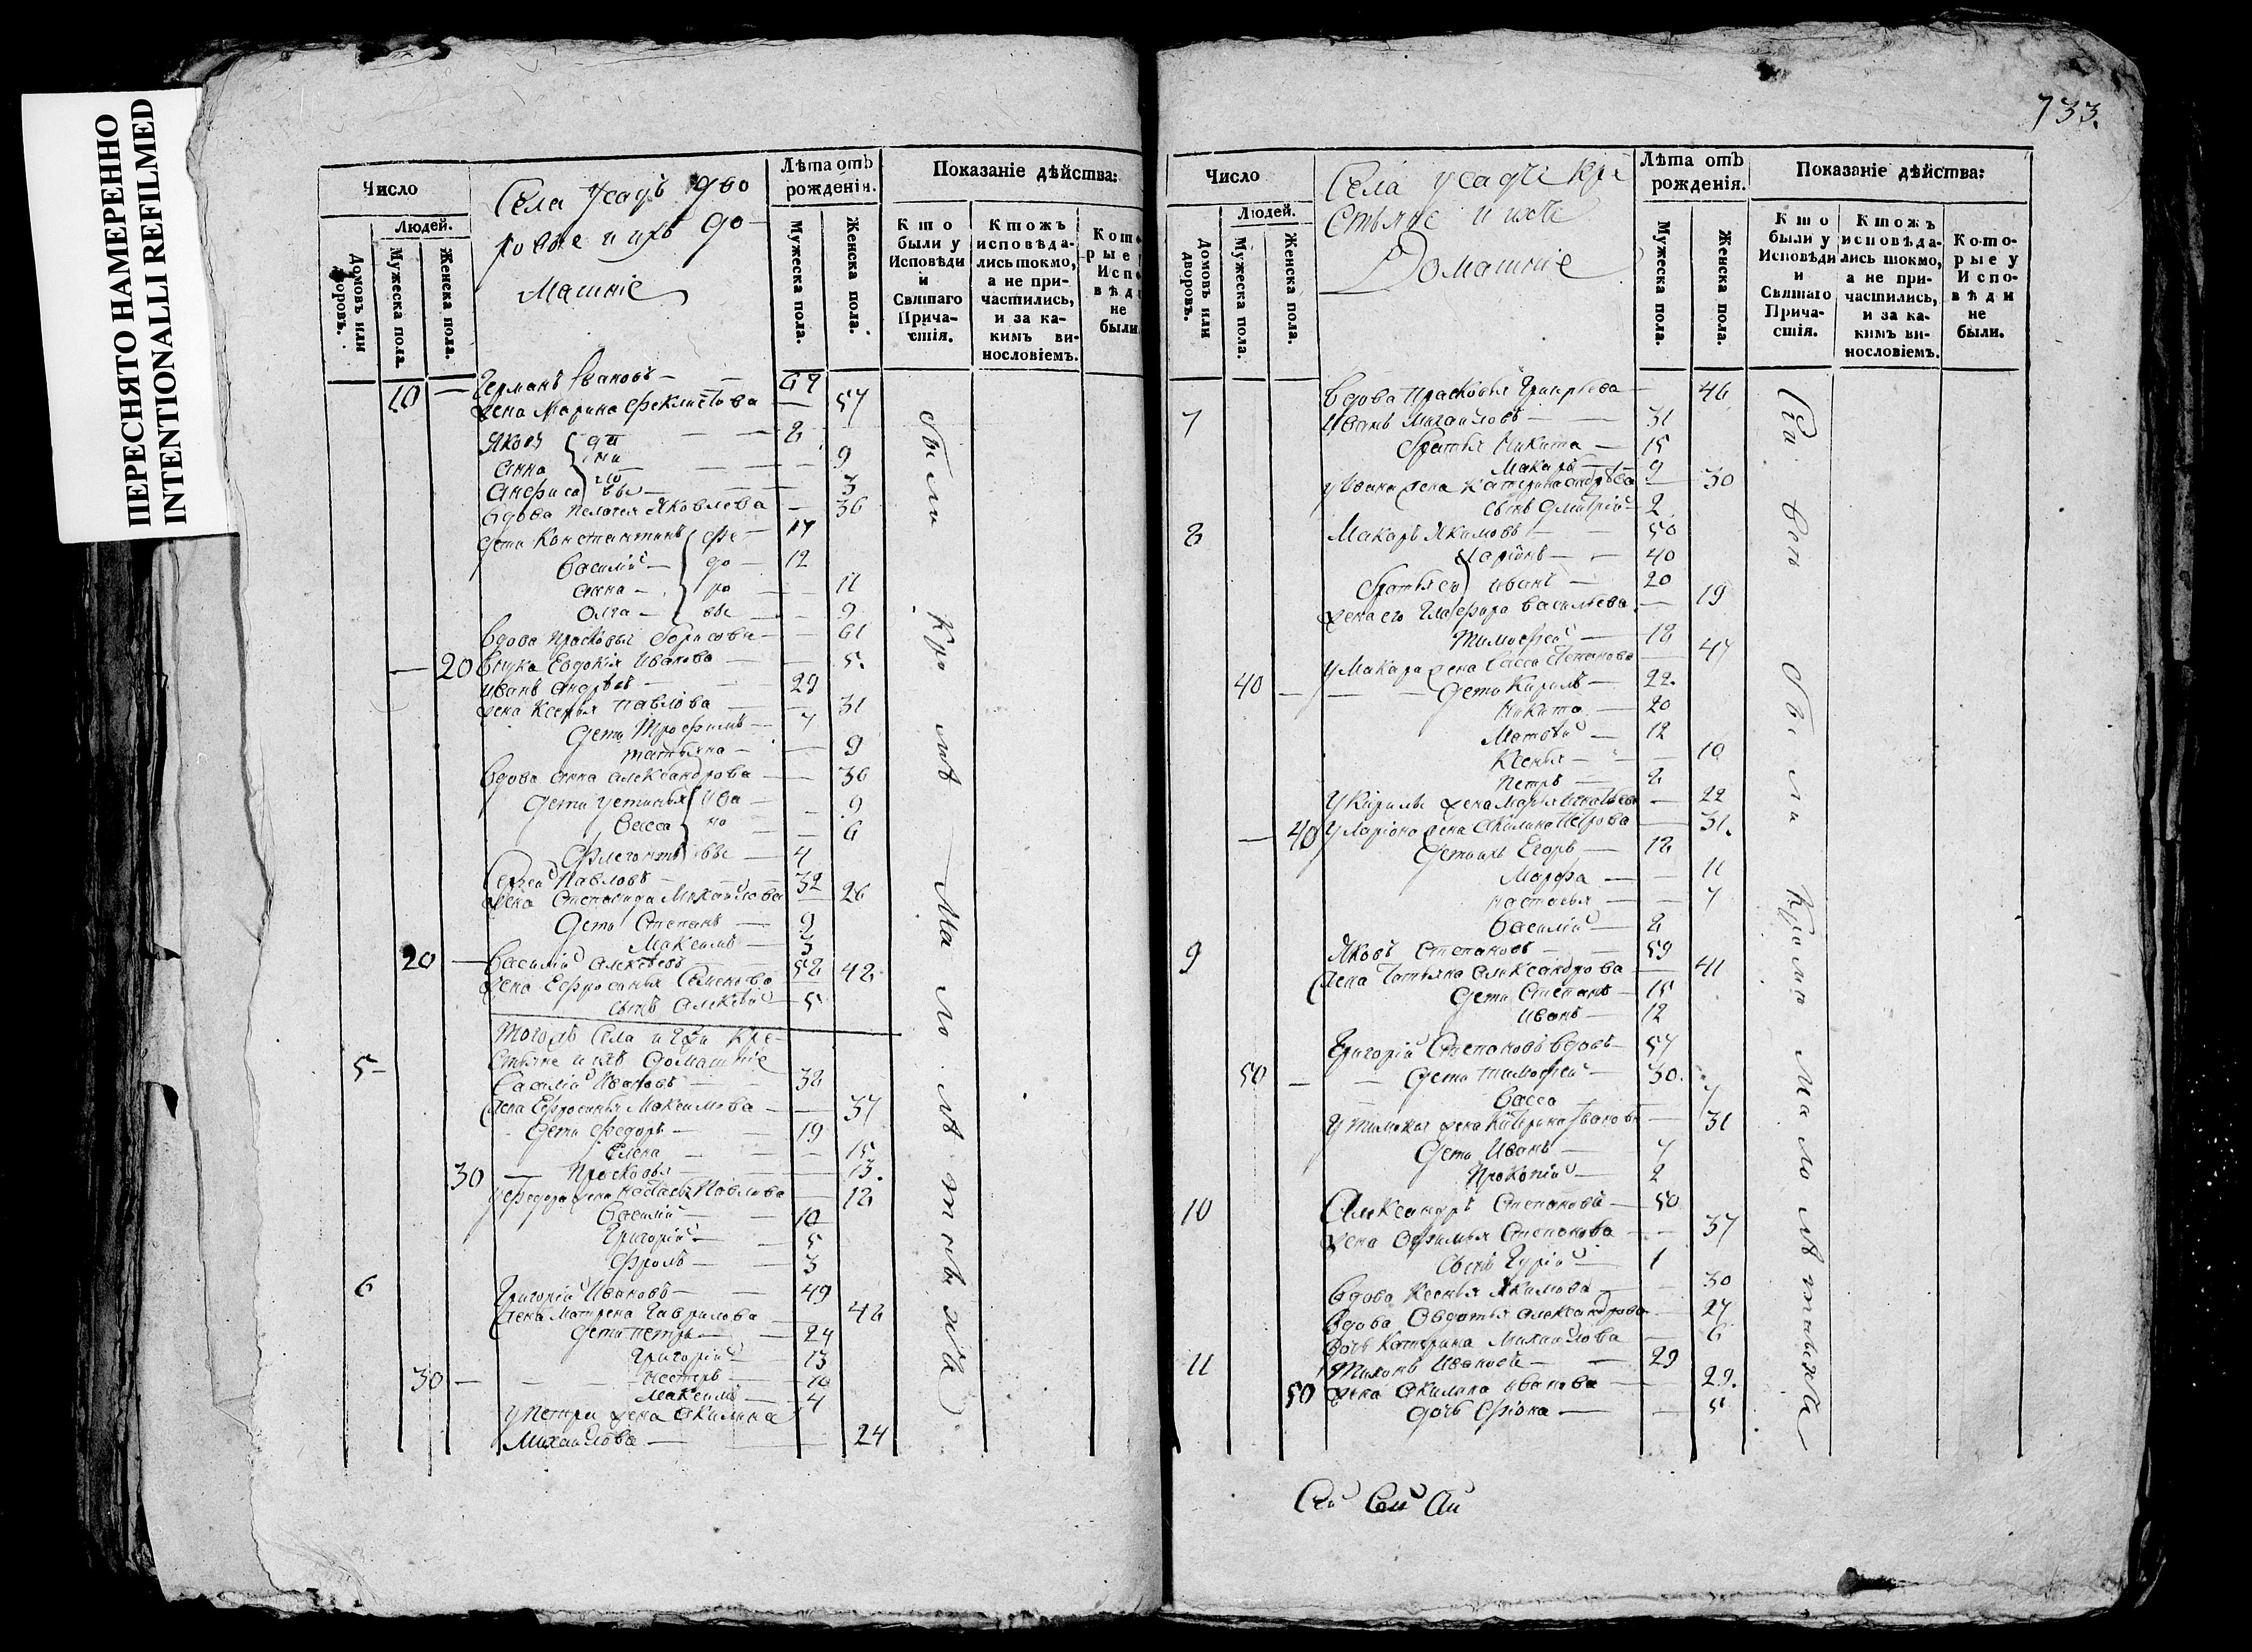 ПЕРЕСНЯТО НАМЕРЕННО
INTENTIONALLI REFILMED
Число
Людей.
Домовъ или дворовъ.
Мужеска пола.
Женска пола.
Села Усадъ дво
ровые и ихъ до
машніе
Лѣта отъ рожденія.
Мужеска пола.
Женска пола.
Показаніе дѣйства:
Кто были у Исповѣди и Святаго Причастія.
Ктожъ исповѣдались токмо, а не причастились, и за какимъ винословіемъ.
10 — Германъ Ивановъ — 67
жена Марина Феклистова — 57
Яковъ — 8
Анна — 9
Анфиса — 3
вдова Пелагея Яковлева — 36
дети Константинъ — 17
Василій — 12
Анна — 11
Олга — 9
Вдова Прасковья Борисова — 61
— 20 внука Евдокія Иванова — 5.
Иванъ Андрѣевъ — 29
жена Ксенья Павлова — 31
дети Трофимъ — 7
Татьяна — 9
Вдова Анна Александрова — 36
дети Устинья — 9
Васса — 6
Флегонтъ — 4
Сергей Павловъ — 32
жена Степанида Михайлова — 26
дети Степанъ — 9
Максимъ — 3
20 — Василій Алексѣевъ — 52
жена Ефросинья Семенова — 42
сынъ Алексѣй — 5
Тогожъ Села
стьяне и ихъ домашніе
5 Василій Ивановъ — 38
жена Ефросинья Максимова — 37
дети Федоръ — 19
Елена — 15
30 — Прасковья — 13.
у Федора жена Настасья Павлова — 18
Василій — 10
Григорій — 5
Фролъ — 3
6 Григорій Ивановъ — 49
жена Матрена Гаврилова — 48
дети Петръ — 24
Григорій — 13
30 — Нестеръ — 10
Максимъ — 4
у Петра жена Акилина
Михайлова — 24
были Кро мѣ Ма ло лѣ тныхъ
733.
Число
Людей.
Домовъ или дворовъ.
Мужеска пола.
Женска пола.
Села Усадъ кре
стьяне и ихъ
Домашніе
Лѣта отъ рожденія.
Мужеска пола.
Женска пола.
Показаніе дѣйства:
Кто были у Исповѣди и Святаго Причастія.
Ктожъ исповѣдались токмо, а не причастились, и за какимъ винословіемъ.
Которые у Исповѣди не были.
Вдова Прасковья Григорьева — 46
7 Иванъ Михайловъ — 31
братья Никита — 15
Макаръ — 9
у Ивана жена Катерина Андрѣева — 30
сынъ Дмитрій — 2
8 Макаръ Якимовъ — 50
Ларіонъ — 40
братья его Иванъ — 20
жена его Глафира Васильева — 19
Тимофей — 18
у Макара жена Васса Степанова — 47
40 — дети Кирилъ — 22.
Никита — 20
Матвѣй — 12
Ксенья — 10
Петръ — 2
у Кирилы жена Марья Игнатьева — 22
— 40 у Ларіона жена Акилина Петрова — 31.
дети ихъ Егоръ — 12
Марфа — 11
Настасья — 7
Василій — 2
9 Яковъ Степановъ — 59
жена Татьяна Александрова — 41
дети Степанъ — 15
Иванъ — 12
Григорій Степановъ вдовъ — 57
50 — дети Тимофей — 30.
Васса — 7
у Тимофея жена Катерина Иванова — 31
дети Иванъ — 7
Прокопій — 2
10 Александръ Степановъ — 50
жена Офимья Степанова — 37
сынъ Гурій — 1
Вдова Ксенья Якимова — 30
Вдова Авдотья Александрова — 27
дочь Катерина Михайлова — 6
11 Тихонъ Ивановъ — 29
50 жена Акилина Иванова — 29.
дочь Фіона — 5
Сіи Всѣ бы ли Кромѣ Ма ло лѣтныхъ